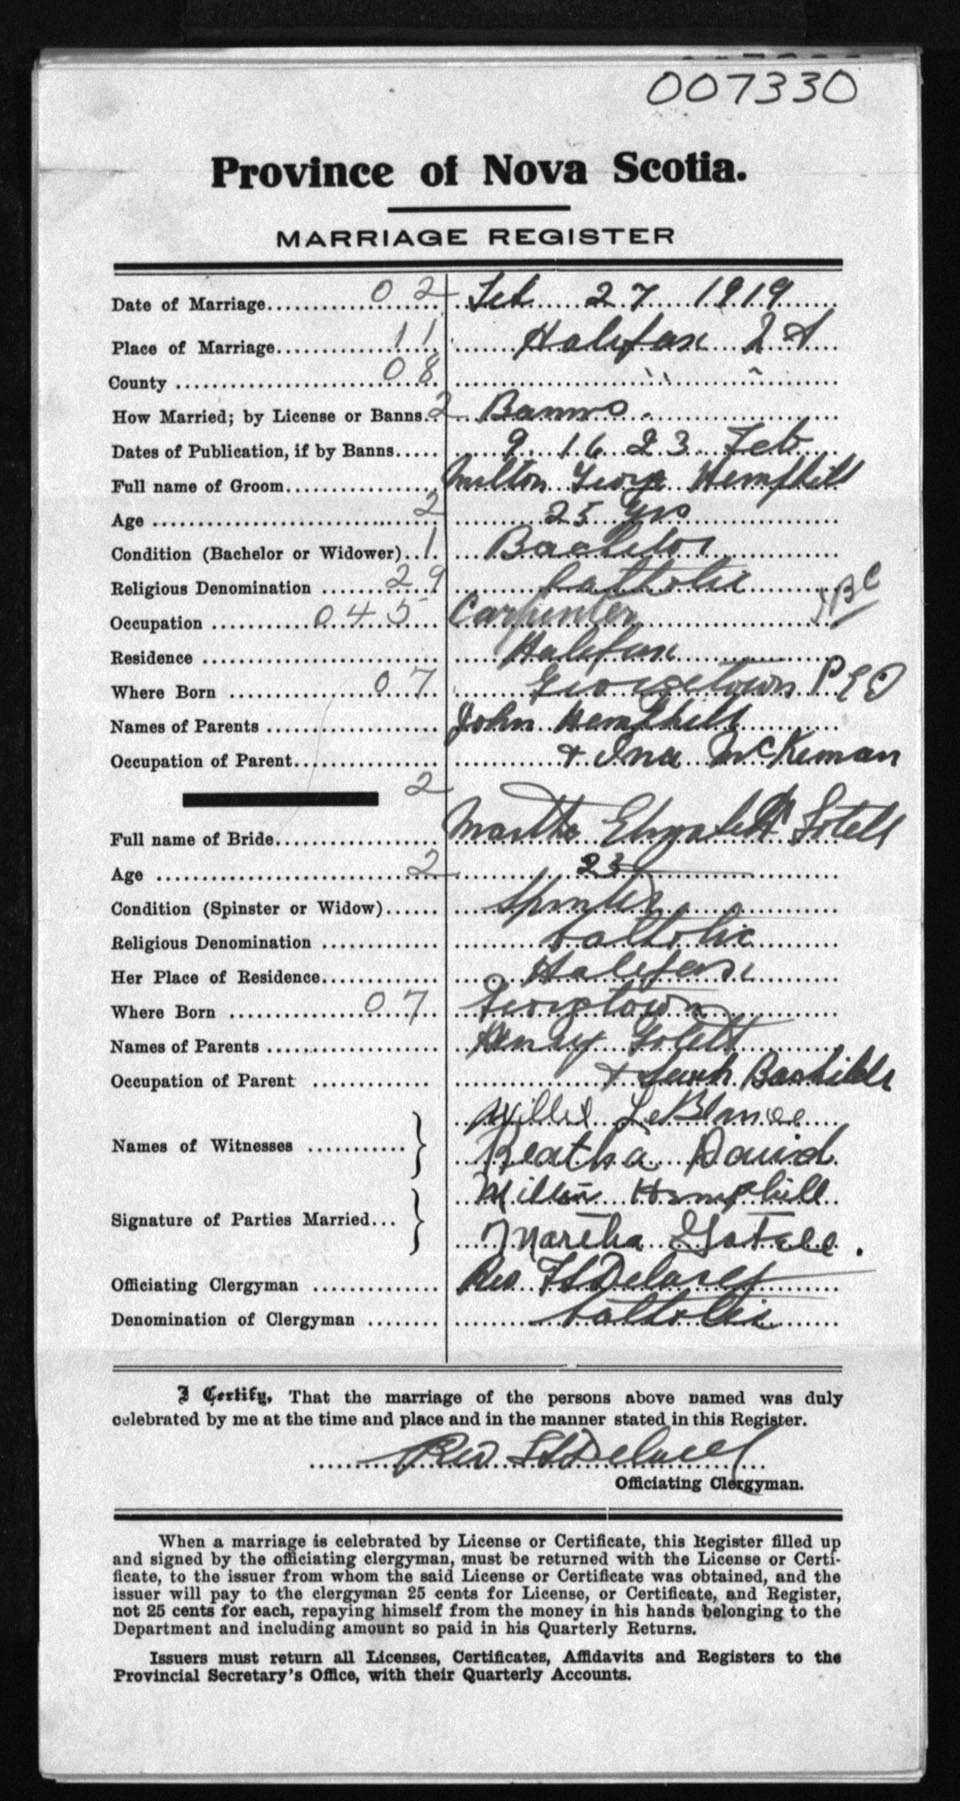 007330
Province of Nova Scotia.
MARRIAGE REGISTER
Date of Marriage 02 Feb 27 1919
Place of Marriage 11 Halifax
County 08 " "
How Married; by License or Banns 2 Banns.
Dates of Publication, if by Banns 9 16 23 Feb
Full name of Groom Milton George Hemphill
Age 2 25 yrs
Condition (Bachelor or Widower) 1 Bachelor
Religious Denomination 29 Catholic
Occupation 045 Carpenter
Residence Halifax
Where Born 07 Georgetown P E I
Names of Parents John Hemphill
Occupation of Parent + Ina McKernan
2
Full name of Bride Martha Elizabeth
Age 2 23
Condition (Spinster or Widow) Spinster
Religious Denomination Catholic
Her Place of Residence Halifax
Where Born 07 Georgetown
Names of Parents Henry
Occupation of Parent + Sarah
Names of Witnesses } Willie LeBlanc
Beatha David
Signature of Parties Married } Milton Hemphill
Martha
Officiating Clergyman Rev
Denomination of Clergyman Catholic
I Certify, That the marriage of the persons above named was duly
celebrated by me at the time and place and in the manner stated in this Register.
Rev
Officiating Clergyman.
When a marriage is celebrated by License or Certificate, this Register filled up
and signed by the officiating clergyman, must be returned with the License or Certi-
ficate, to the issuer from whom the said License or Certificate was obtained, and the
issuer will pay to the clergyman 25 cents for License, or Certificate, and Register,
not 25 cents for each, repaying himself from the money in his hands belonging to the
Department and including amount so paid in his Quarterly Returns.
Issuers must return all Licenses, Certificates, Affidavits and Registers to the
Provincial Secretary's Office, with their Quarterly Accounts.